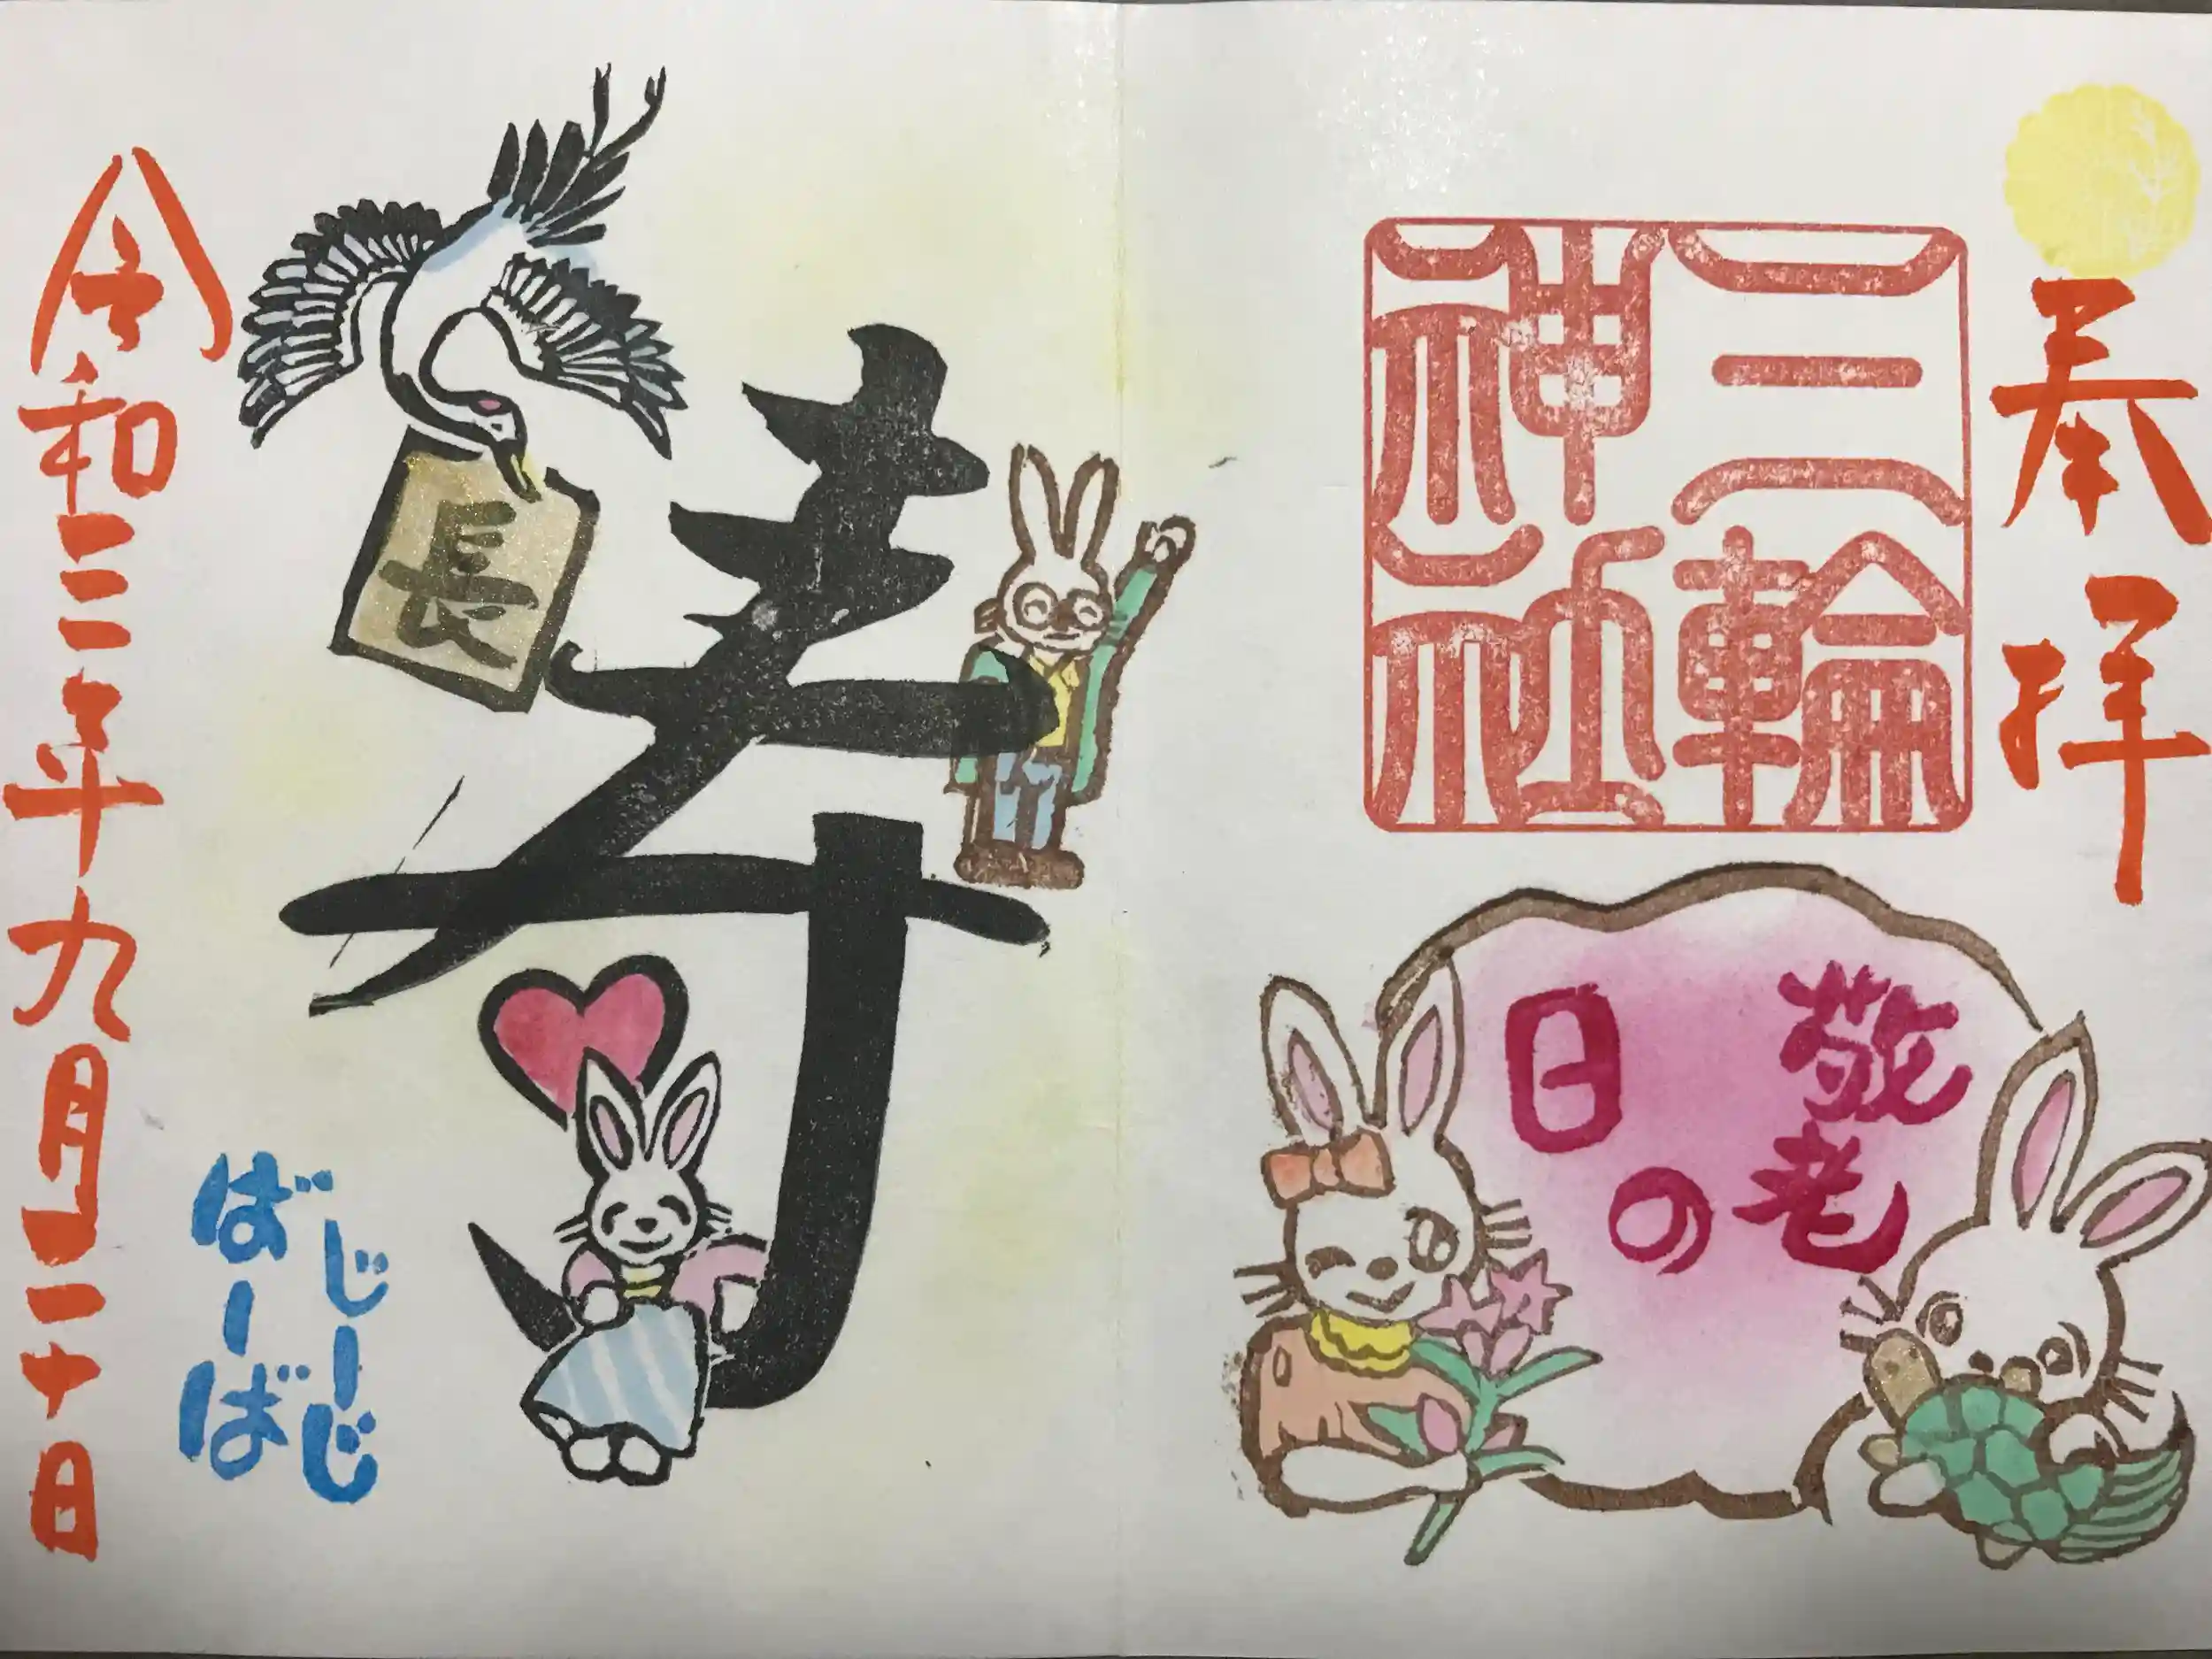 奉拝
三輪
神社
敬老
の
日
寿
長
じーじ
ばーば
令和三年九月二十日